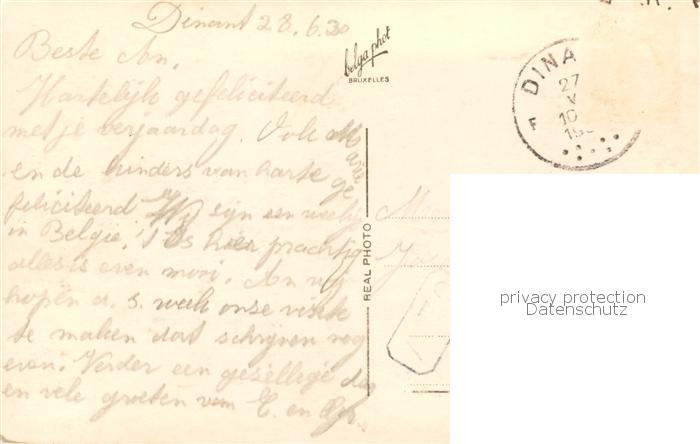 Dinant 28.6.30
Beste An.
Hartelijk gefeliciteerd
met je verjaardag. Ook Marie
en de kinders van harte ge
feliciteerd Wij zijn een weekje
in België. 't Is hier prachtig
alles is even mooi. An wij
hopen a. s. week onze visite
te maken dat schrijven nog
even. Verder een gezellige dag
en vele groeten van E. en
belga phot
BRUXELLES
REAL PHOTO
DINA
27
V
10
19
F
privacy protection
Datenschutz